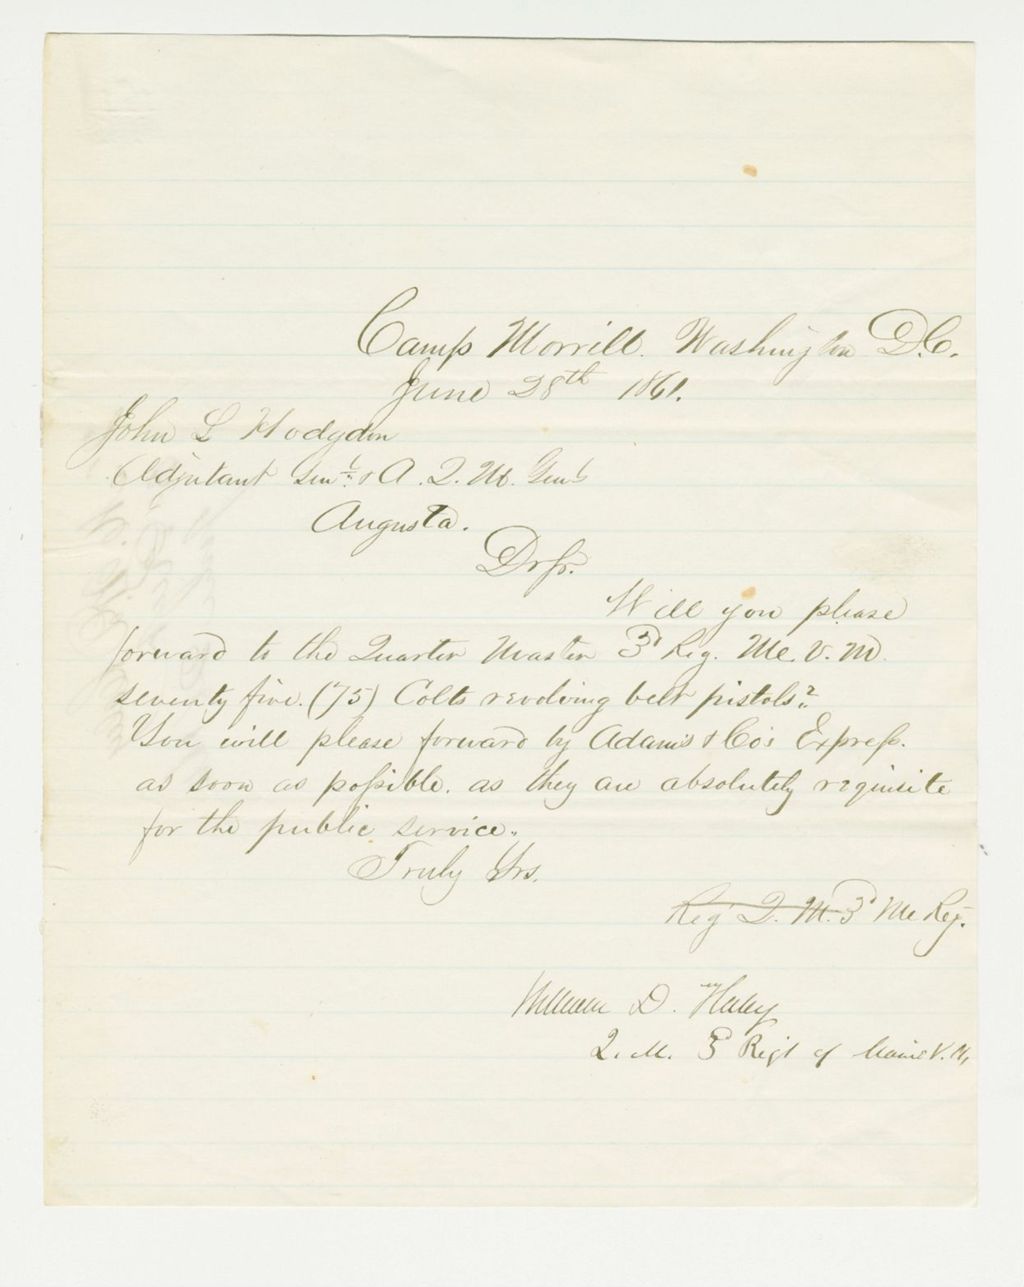 Camp Morrill. Washington D.C.
June 28th 1861.
John L Hodgdon
Adjutant Genl & A. Q. M. Genl
Augusta.
Dr Sr.
Will you please
forward to the Quarter Master 3d Reg. Me. V. M.
seventy five. (75) Colts revolving belt pistols?
You will please forward by Adams & Co's Express.
as soon as possible. as they are absolutely requisite
for the public service.
Truly Yrs.
Reg Q. M. 3d Me Reg.
William D. Haley
Q. M. 3 Regt of Maine V. M.